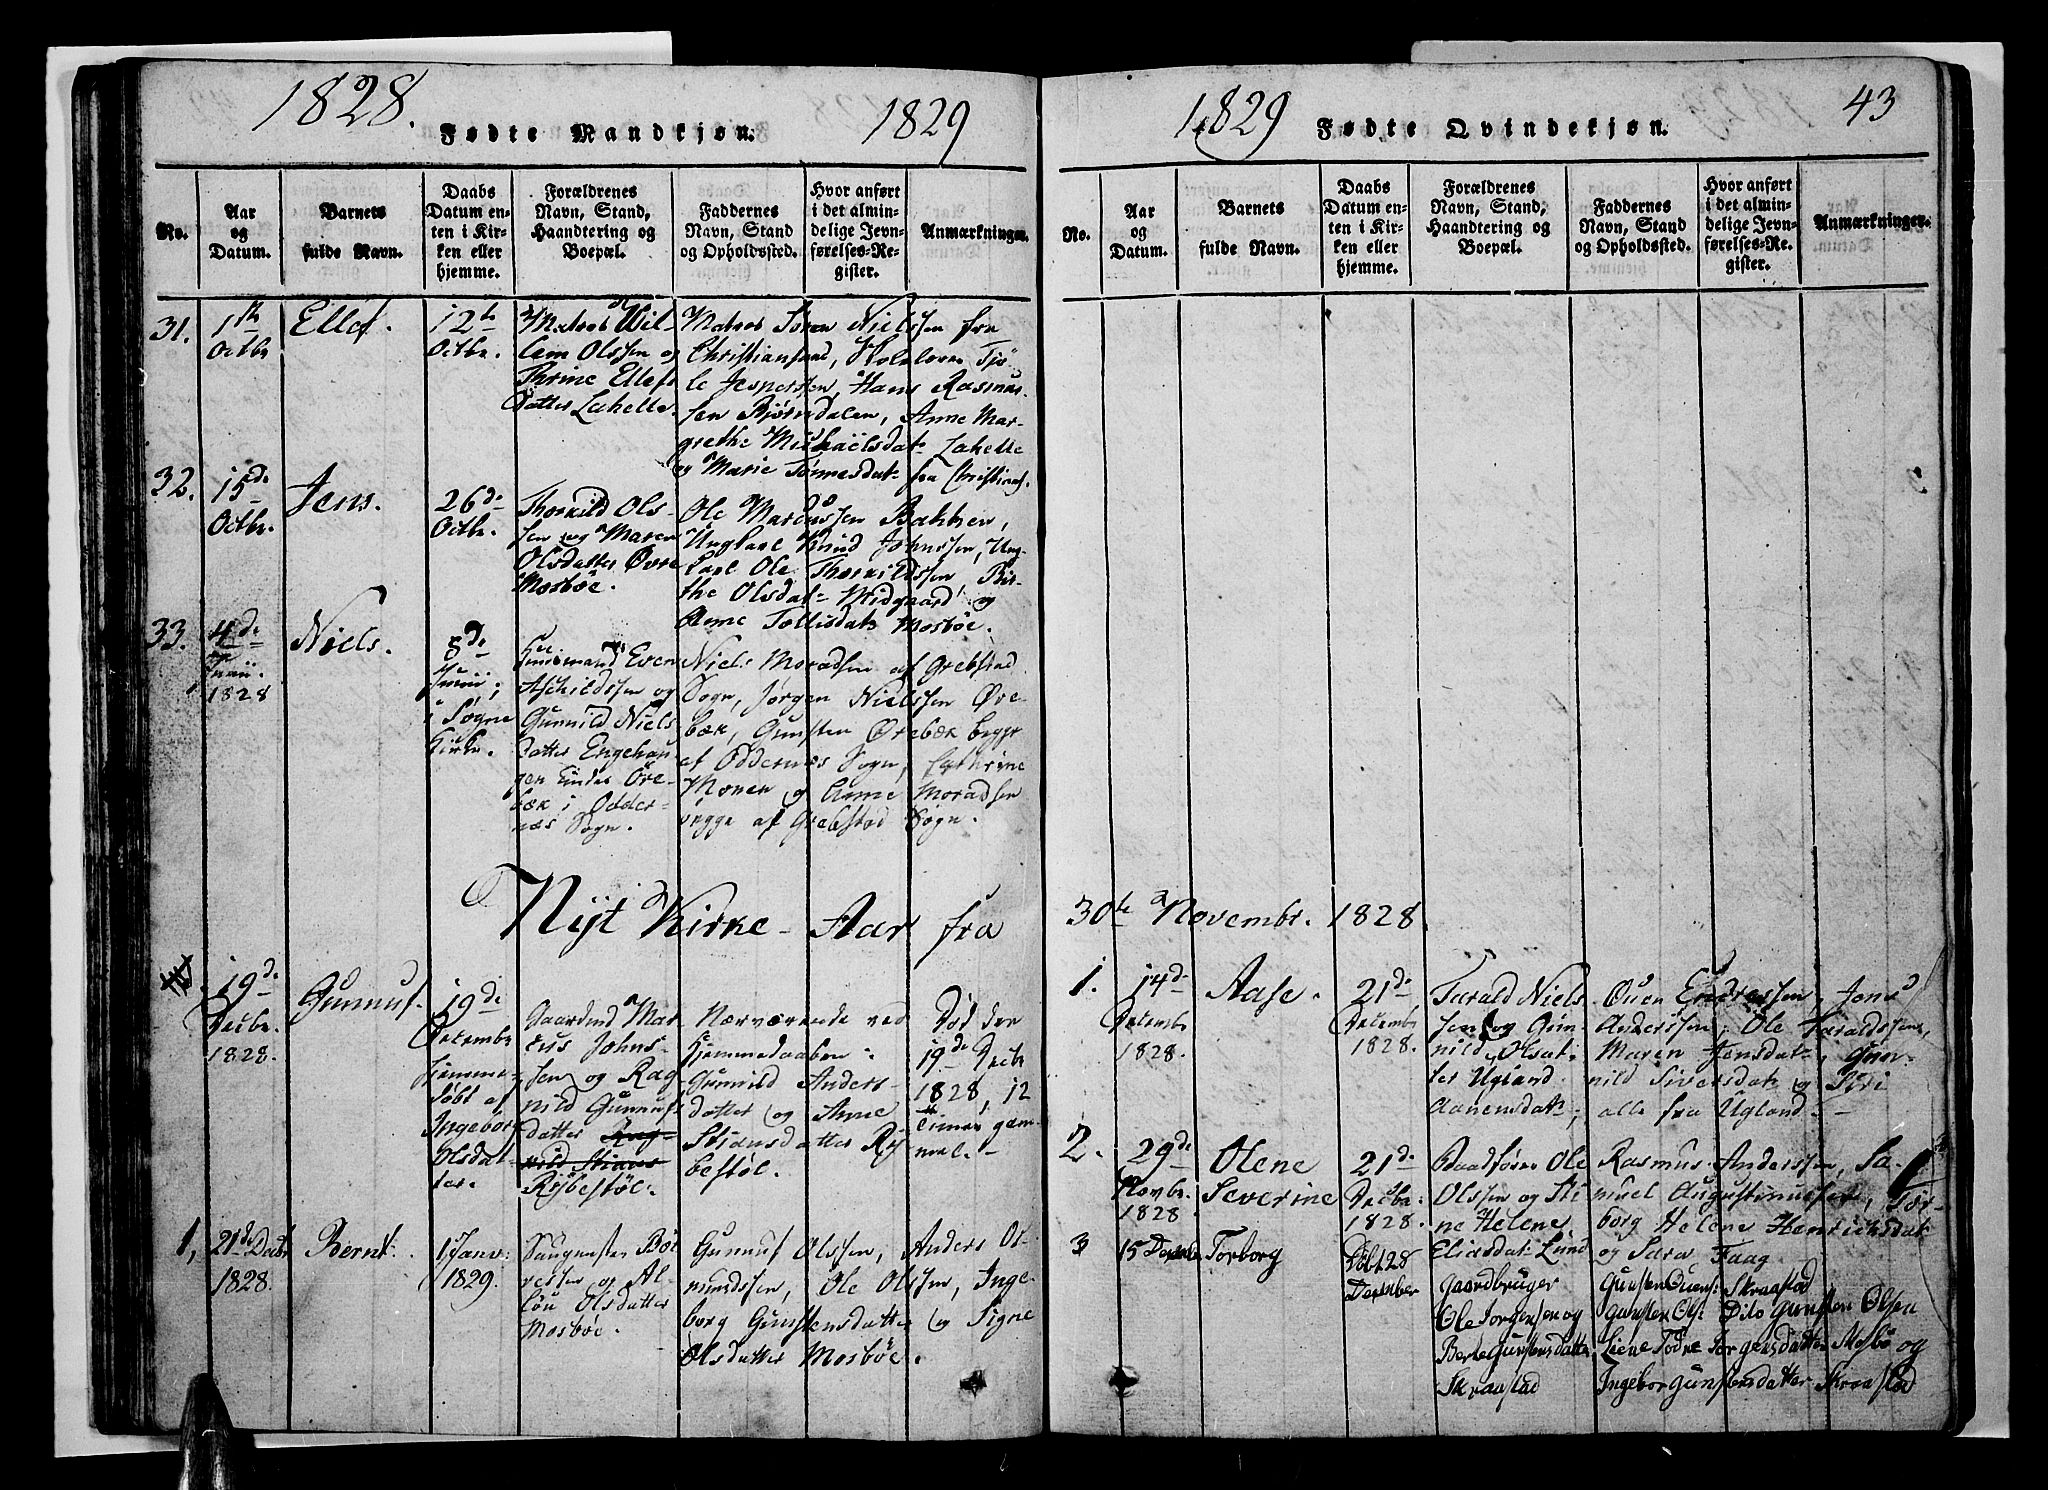 1828.
Fødte Mandkjøn.
1829
No.
Aar
og
Datum.
Barnets
fulde Navn.
Daabs
Datum en-
ten i Kir-
ken eller
hjemme.
Forældrenes
Navn, Stand,
Haandtering og
Boepæl.
Faddernes
Navn, Stand
og Opholdssted.
Hvor anført
i det almin-
delige Jevn-
førelses-Re-
gister.
Anmærkninger.
31.
1te
Octbr
Ellef.
12te
Octbr.
Matros Vil-
lem Olssen og
Thrine Ellefs
Datter Lahelle.
Matros Søren Nielssen fra
Christiansand,
le Jesperssen, Hans Rasmus-
sen Bjørndalen, Anne Mar-
grethe Michaelsdatr Lahelle
og Marie Tørresdatr fra Christians.
32.
15de
Octbr.
Jens.
26de
Octbr.
Thorkild Ols-
sen og Maren
Olsdatter Øvre
Mosbøe.
Ole Marcussen Bakken,
Ungkarl Knud Johnssen, Ung-
karl Ole Thorkildssen, Bir-
the Olsdatr Midgaard og
Anne Tellisdatr Mosbøe.
33.
4de
Junii.
1828
Niels.
8de
Junii;
i Sogne
Kirke.
Huusmand Even
Aschildssen og
Gunnild Niels
datter Engehau-
gen under Øre-
bæk i Odder-
næs Sogn.
Niels Moradsen af Grebstad
Sogn, Jørgen Nielssen Øre-
bæk, Gunsten Ørebæk begge
af Oddernæs Sogn, Cathrine
Monen og Anne Moradsen
begge af Grebstad Sogn.
Nijt Kirke-Aar fra
19de
Decbr.
1828
Gunnuf.
19de
Decembr
hjemme-
døbt af
Ingeborg
Olsdat-
ter.
Gaardmd Mar-
cus Johns-
sen og Rag-
nild Gunnufs
datter Rag-
nild Stians
Rijbestøl.
Nærværende ved
Hjemmedaaben:
Gunnild Anders-
datter og Anne
Stiansdatter Rij-
bestøl.
Død den
19de Decbr
1828, 12
Timer gam-
mel.
1,
21de Decbr
1828.
Bernt
1 Janv:
1829.
og Al-
løu Olsdatter
Mosbøe.
Gunnuf Olssen, Anders Os-
mundssen, Ole Olssen, Inge-
borg Gunstensdatter og Signe
Olsdatter Mosbøe.
1829
Fødte Qvindekjøn.
43
No.
Aar
og
Datum.
Barnets
fulde Navn.
Daabs
Datum en-
ten i Kir-
ken eller
hjemme.
Forældrenes
Navn, Stand,
Haandtering og
Boepæl.
Faddernes
Navn, Stand
og Opholdssted.
Hvor anført
i det almin-
delige Jevn-
førelses-Re-
gister.
Anmærkninger.
30te Novembr. 1828.
1.
14de
Decembr
1828.
Aase.
21de
Decembr
1828.
Tarald Niels
sen og Gun-
nild Olsdat-
ter Ugland
Aanensdatr;
Ouen Endressen, Jens
Anderssen, Ole Taraldssen,
Maren Jensdatr, Gun-
nild Siversdatr og Siri
alle fra Ugland.
2.
29de
Novbr.
1828
Olene
Severine
21de
Decbr.
1828.
Baadfører Ole
Olssen og Sti
ne Helene
Eliasdatr Lund
Rasmus Anderssen, Sa-
muel Augustinussen, Tor-
borg Helene Henrichsdatr
og Sara Faag
3
15 Decembr
Torborg
Døbt 28
December
Gaardbruger
Ole Torgensen og
Berte Gunstensdatter
Skraastad
Gunsten Ouens: Skraastad
Gunsten Ols: Dito Gunsten Olsen
Liene Todne Torgensdatter Mosbø og
Ingebor Gunstensdatter Skraastad